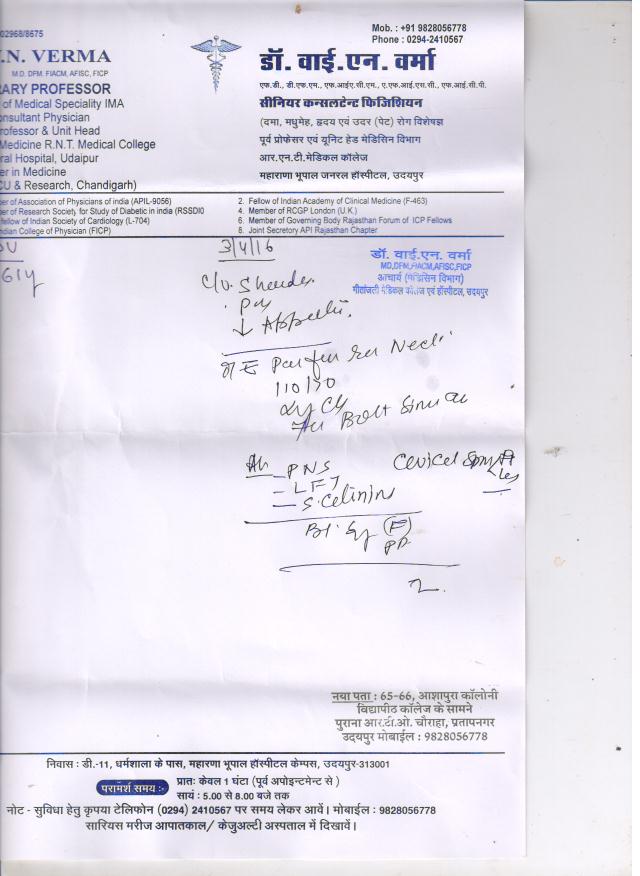 02968/8675
Mob. : +91 9828056778
Phone : 0294-2410567
.N. VERMA
M.D. DFM. FIACM, AFISC, FICP
ARY PROFESSOR
of Medical Speciality IMA
onsultant Physician
rofessor & Unit Head
Medicine R.N.T. Medical College
ral Hospital, Udaipur
er in Medicine
CU & Research, Chandigarh)
डॉ. वाई.एन. वर्मा
एफ.डी., डी.एफ.एम., एफ.आईए.सी.एम., ए.एफ.आई.एस.सी., एफ.आई.सी.पी.
सीनियर कन्सलटेन्ट फिजिशियन
(दमा, मधुमेह, हृदय एवं उदर (पेट) रोग विशेषज्ञ
पूर्व प्रोफेसर एवं यूनिट हेड मेडिसिन विभाग
आर.एन.टी.मेडिकल कॉलेज
महाराणा भूपाल जनरल हॉस्पीटल, उदयपुर
er of Association of Physicians of india (APIL-9056)
er of Research Society for Study of Diabetic in india (RSSDI0
fellow of Indian Society of Cardiology (L-704)
ndian College of Physician (FICP)
2. Fellow of Indian Academy of Clinical Medicine (F-463)
4. Member of RCGP London (U.K.)
6. Member of Governing Body Rajasthan Forum of ICP Fellows
8. Joint Secretary API Rajasthan Chapter
3/4/16
डॉ. वाई.एन. वर्मा
MD,DFM,FIACM,AFISC,FICP
आचार्य (मेडिसिन विभाग)
गीतांजली मेडिकल कॉलेज एवं हॉस्पीटल, उदयपुर
C/o
↓
110/70
PNS
- LFT
(F)
PP
नया पता : 65-66, आशापुरा कॉलोनी
विद्यापीठ कॉलेज के सामने
पुराना आर.टी.ओ. चौराहा, प्रतापनगर
उदयपुर मोबाईल : 9828056778
निवास : डी.-11, धर्मशाला के पास, महारणा भूपाल हॉस्पीटल केम्पस, उदयपुर-313001
परामर्श समय :-
प्रातः केवल 1 घंटा (पूर्व अपोइन्टमेन्ट से )
सायं : 5.00 से 8.00 बजे तक
नोट - सुविधा हेतु कृपया टेलिफोन (0294) 2410567 पर समय लेकर आवें। मोबाईल : 9828056778
सारियस मरीज आपातकाल/ केजुअल्टी अस्पताल में दिखावें।